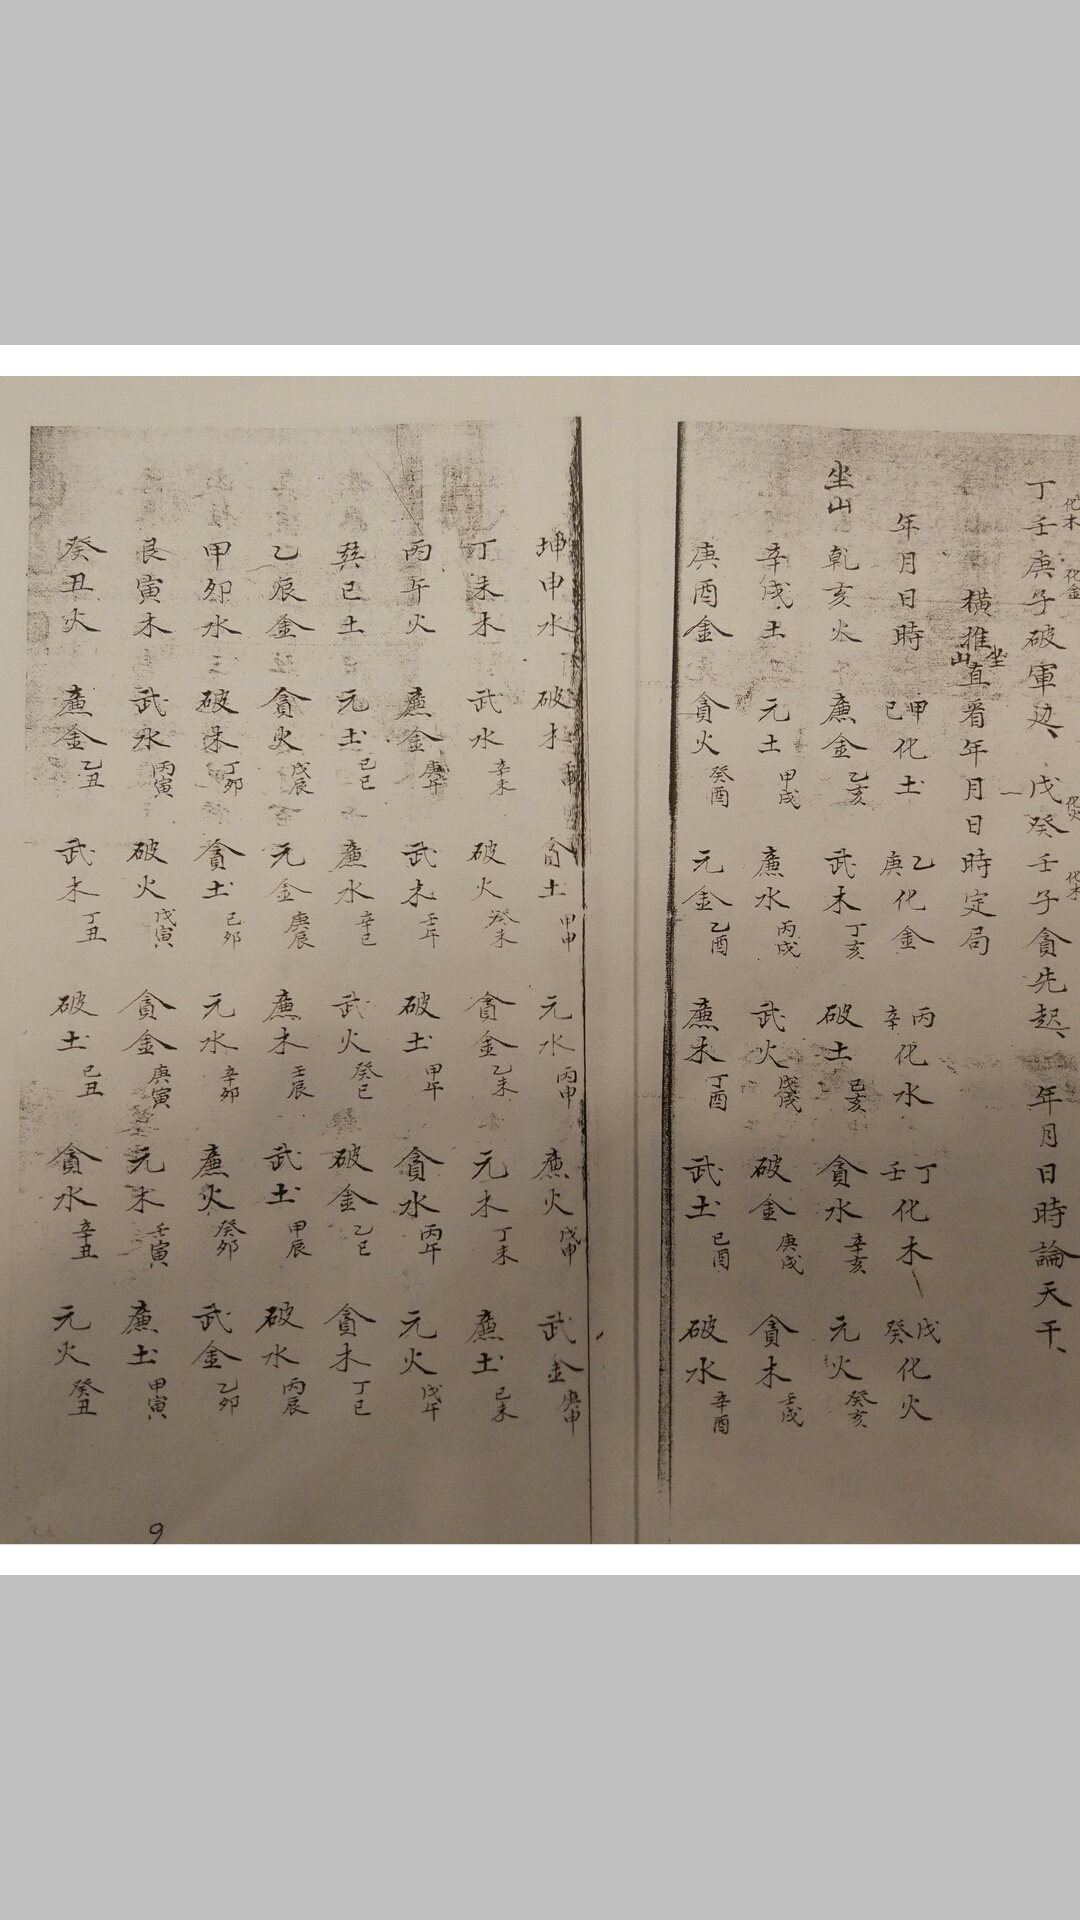 丁壬庚子破軍边、戊癸壬子貪先起、年月日時論天干、
化木
化金
化火
化木
橫推直看年月日時定局
坐山
年月日時 甲己化土 乙庚化金 丙辛化水 丁壬化木 戊癸化火
坐山 乾亥火 廉金 乙亥 武木 丁亥 破土 己亥 貪水 辛亥 元火 癸亥
辛戌土 元土 甲戌 廉水 丙戌 武火 戊戌 破金 庚戌 貪木 壬戌
庚酉金 貪火 癸酉 元金 乙酉 廉木 丁酉 武土 己酉 破水 辛酉
坤申水 破木 貪土 甲申 元水 丙申 廉火 戊申 武金 庚申
丁未木 武水 辛未 破火 癸未 貪金 乙未 元木 丁未 廉土 己未
丙午火 廉金 庚午 武木 壬午 破土 甲午 貪水 丙午 元火 戊午
巽巳土 元土 己巳 廉水 辛巳 武火 癸巳 破金 乙巳 貪木 丁巳
乙辰金 貪火 戊辰 元金 庚辰 廉木 壬辰 武土 甲辰 破水 丙辰
甲卯水 破木 丁卯 貪土 己卯 元水 辛卯 廉火 癸卯 武金 乙卯
艮寅木 武水 丙寅 破火 戊寅 貪金 庚寅 元木 壬寅 廉土 甲寅
癸丑火 廉金 乙丑 武木 丁丑 破土 己丑 貪水 辛丑 元火 癸丑
9